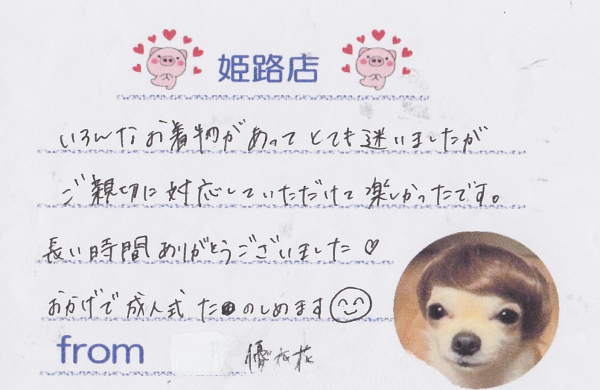 姫路店
いろんなお着物があってとても迷いましたが
ご親切に対応していただけて楽しかったです。
長い時間ありがとうございました♡
おかげで成人式たのしめます
from